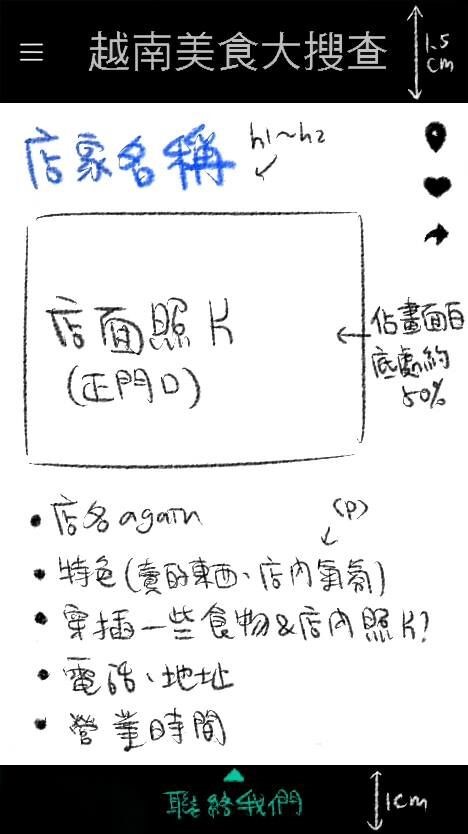 越南美食大搜查
1.5
cm
店家名稱
h1~h2
店面照片
(正門口)
佔畫面白
底處約
50%
店名again
(p)
特色(賣的東西、店內氣氛)
穿插一些食物&店內照片?
電話、地址
營業時間
聯絡我們
1cm